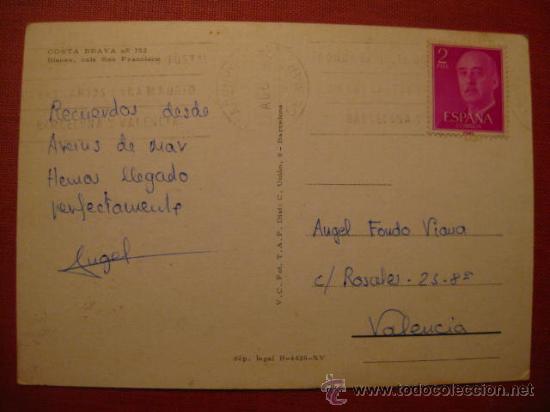 COSTA BRAVA nº 752
Blanes, cala San Francisco
2
PTAS
ESPAÑA
Recuerdos desde
Arenys de Mar
Hemos llegado
perfectamente
Angel
V.C. Fot. T.A.P. Dist: C. Unión, 8 - Barcelona
Angel Fondo Viana
c/ Rosales - 23-8º
Valencia
dép. legal B-4426-XV
www.todocoleccion.net